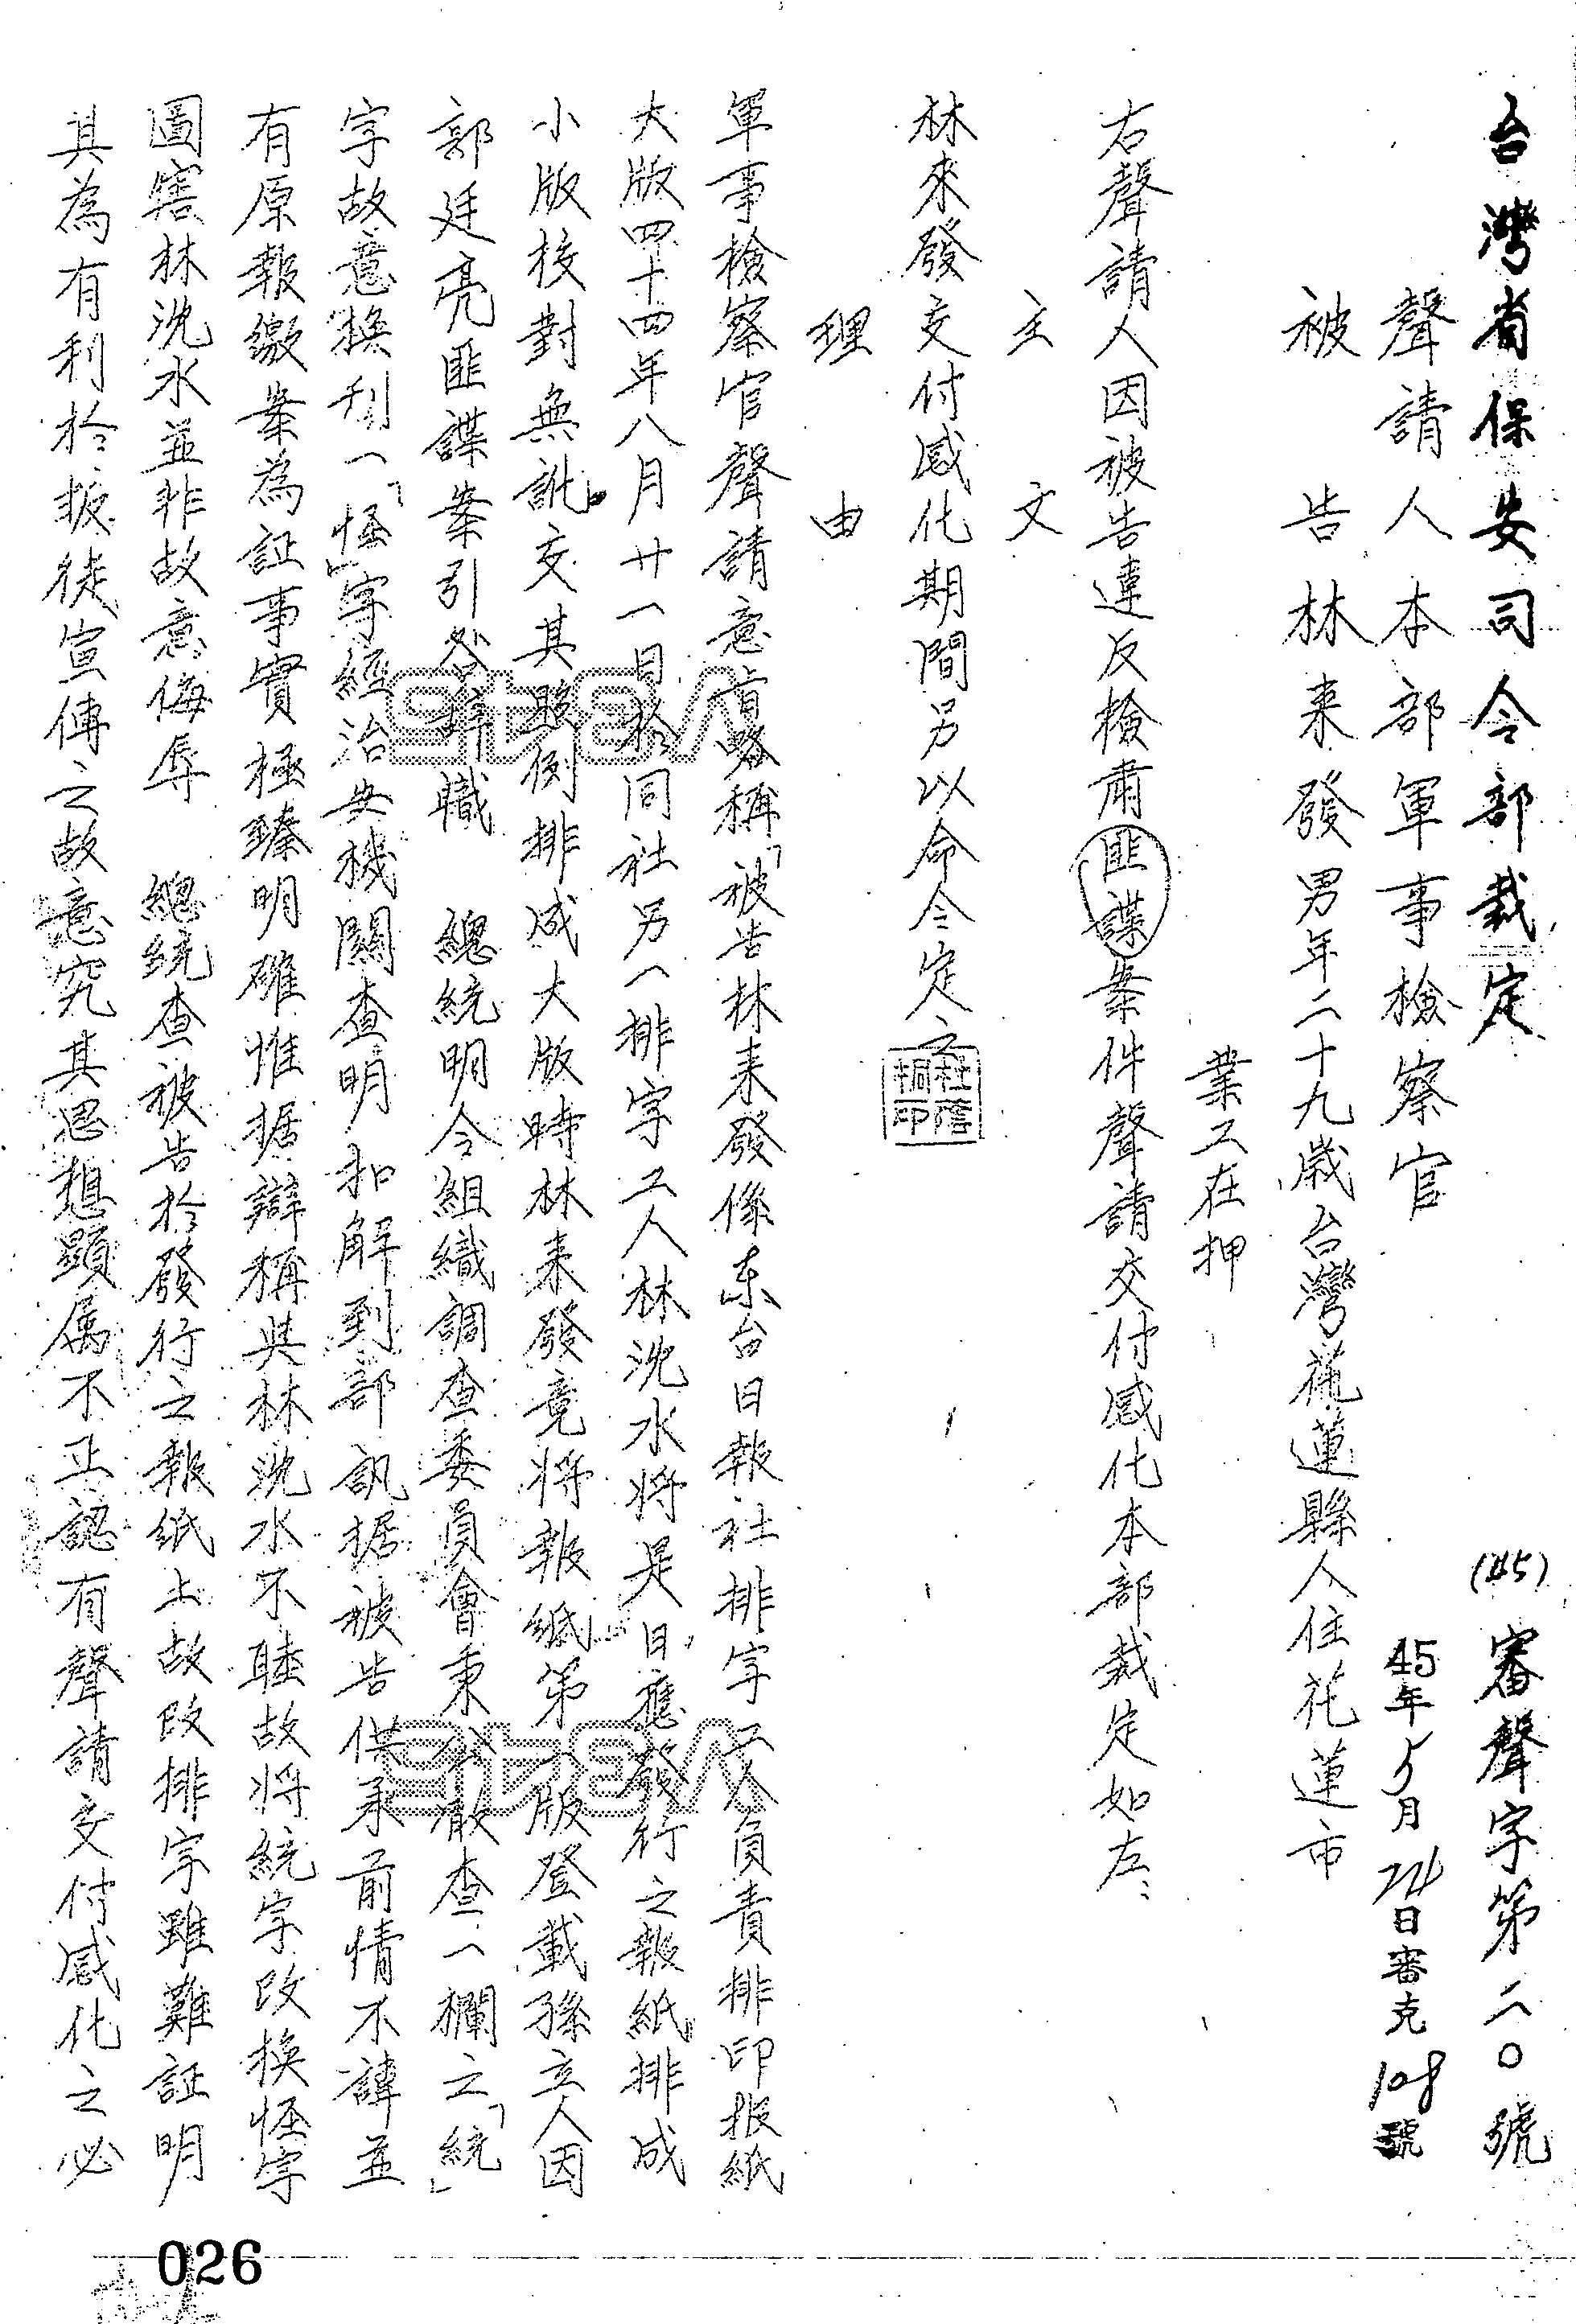 台灣省保安司令部裁定
(45)審聲字第二〇號
45年5月24日審克108號
聲請人本部軍事檢察官
被告林来發男年二十九歲台灣花蓮縣人住花蓮市
業工在押
右聲請人因被告違反檢肅匪諜案件聲請交付感化本部裁定如左
主文
林來發交付感化期間另以命令定之
理由
軍事檢察官聲請意旨略稱「被告林来發係东台日報社排字工人負責排印报紙
大版四十四年八月廿一日於同社另一排字工人林沈水將是日應發行之報紙排成
小版校對無訛交其照例排成大版時林来發竟将報紙第一版登載孫立人因
郭廷亮匪諜案引咎辞職 總統明令組織調查委員會秉公徹查一欄之「統」
字故意换刊一「怪」字經治安機關查明扣解到部訊据被告供承前情不諱並
有原報繳案為証事實極臻明確惟据辯稱與林沈水不睦故将統字改換怪字
圖害林沈水並非故意侮辱 總統查被告於發行之報紙上故改排字雖難証明
其為有利於叛徒宣傳之故意究其思想顕属不正認有聲請交付感化之必
026